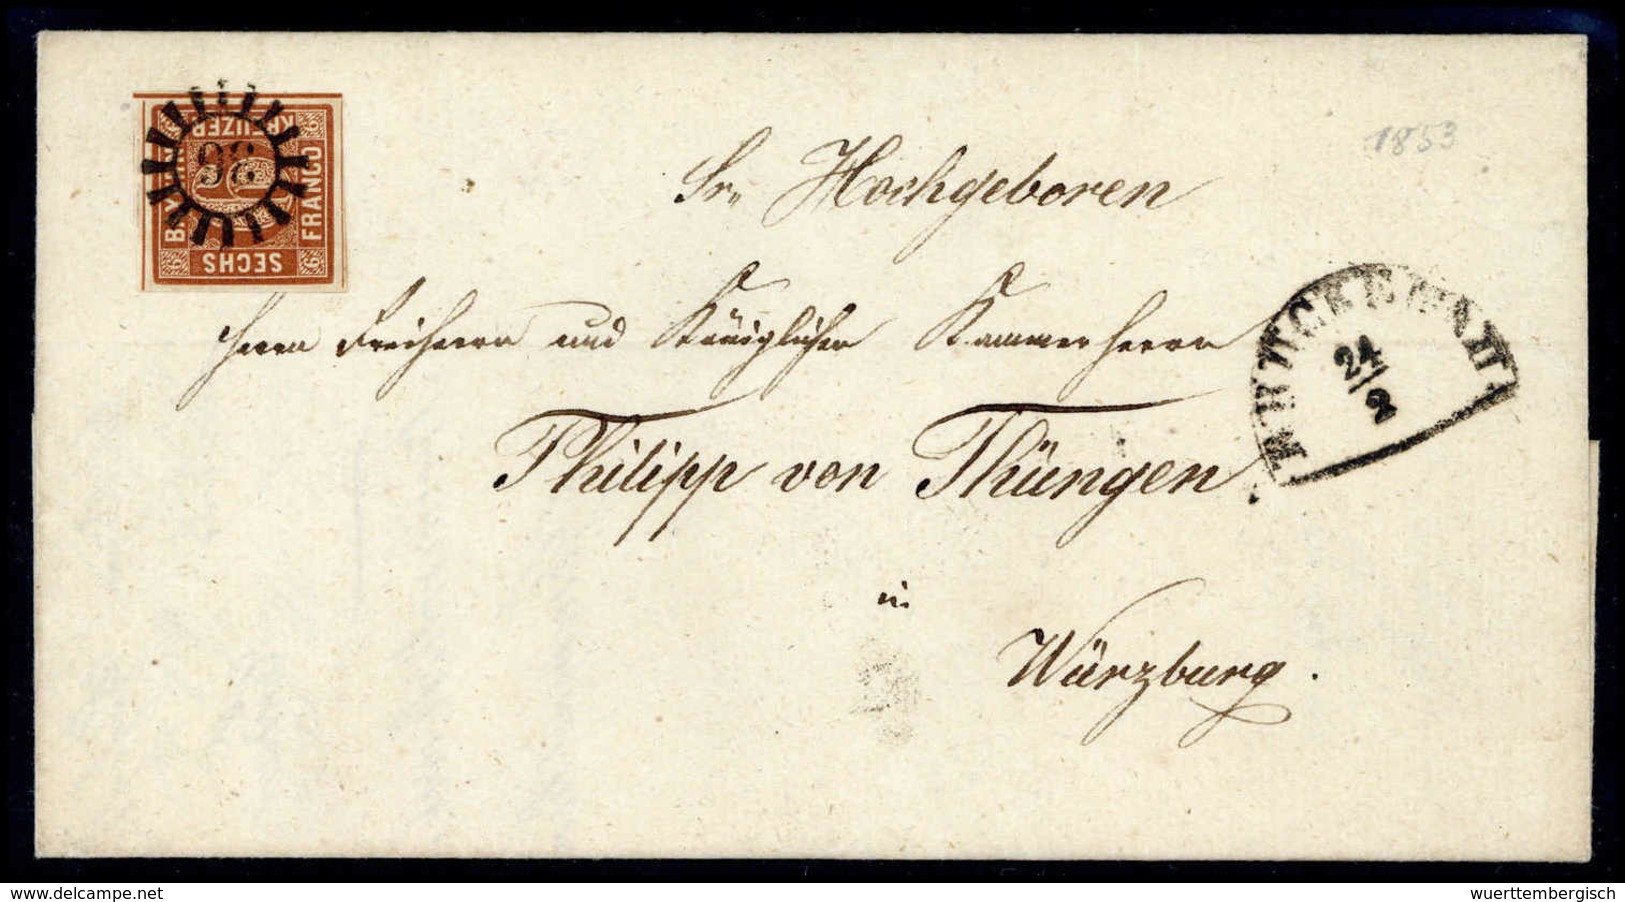 KREUZER
BAYERN
FRANCO
SECHS
6
6
6
98
1853
Sr. Hochgeboren
Herrn Freiherrn und Königlichen Kammerherrn
Philipp von Thüngen
in
Würzburg.
BRÜCKENAU
24/2
delcampe.net
wuerttembergisch